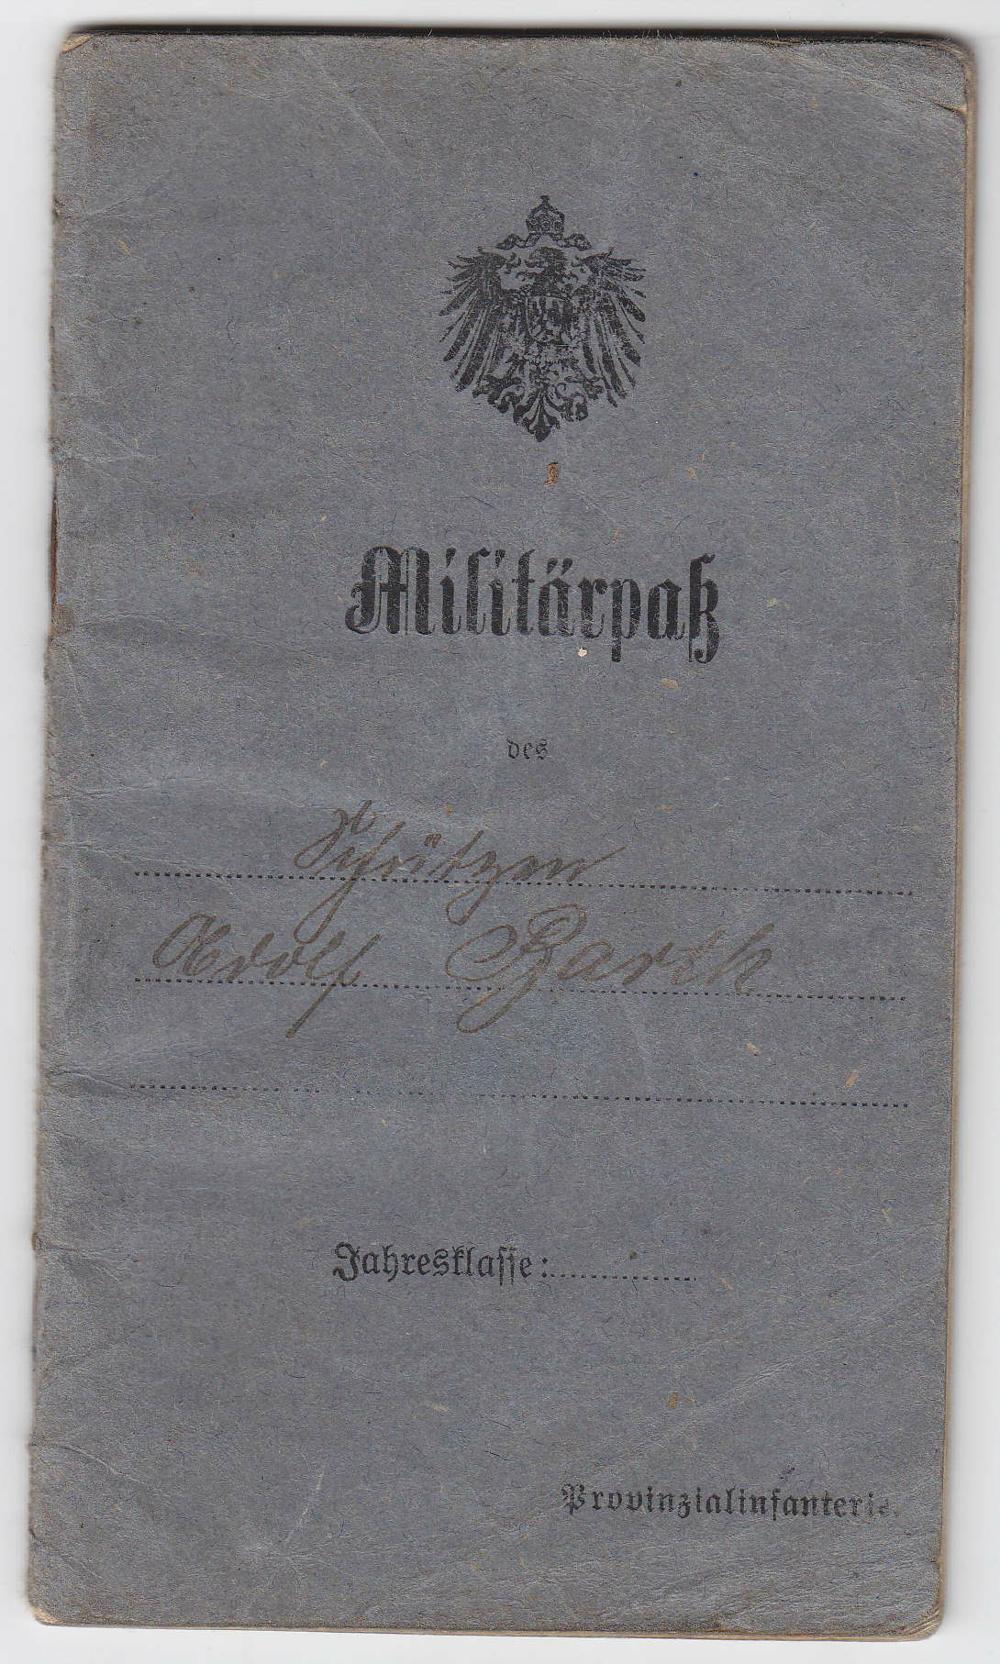 Militärpaß
des
Schützen
Adolf Barth
Jahresklasse:
Provinzialinfanterie.